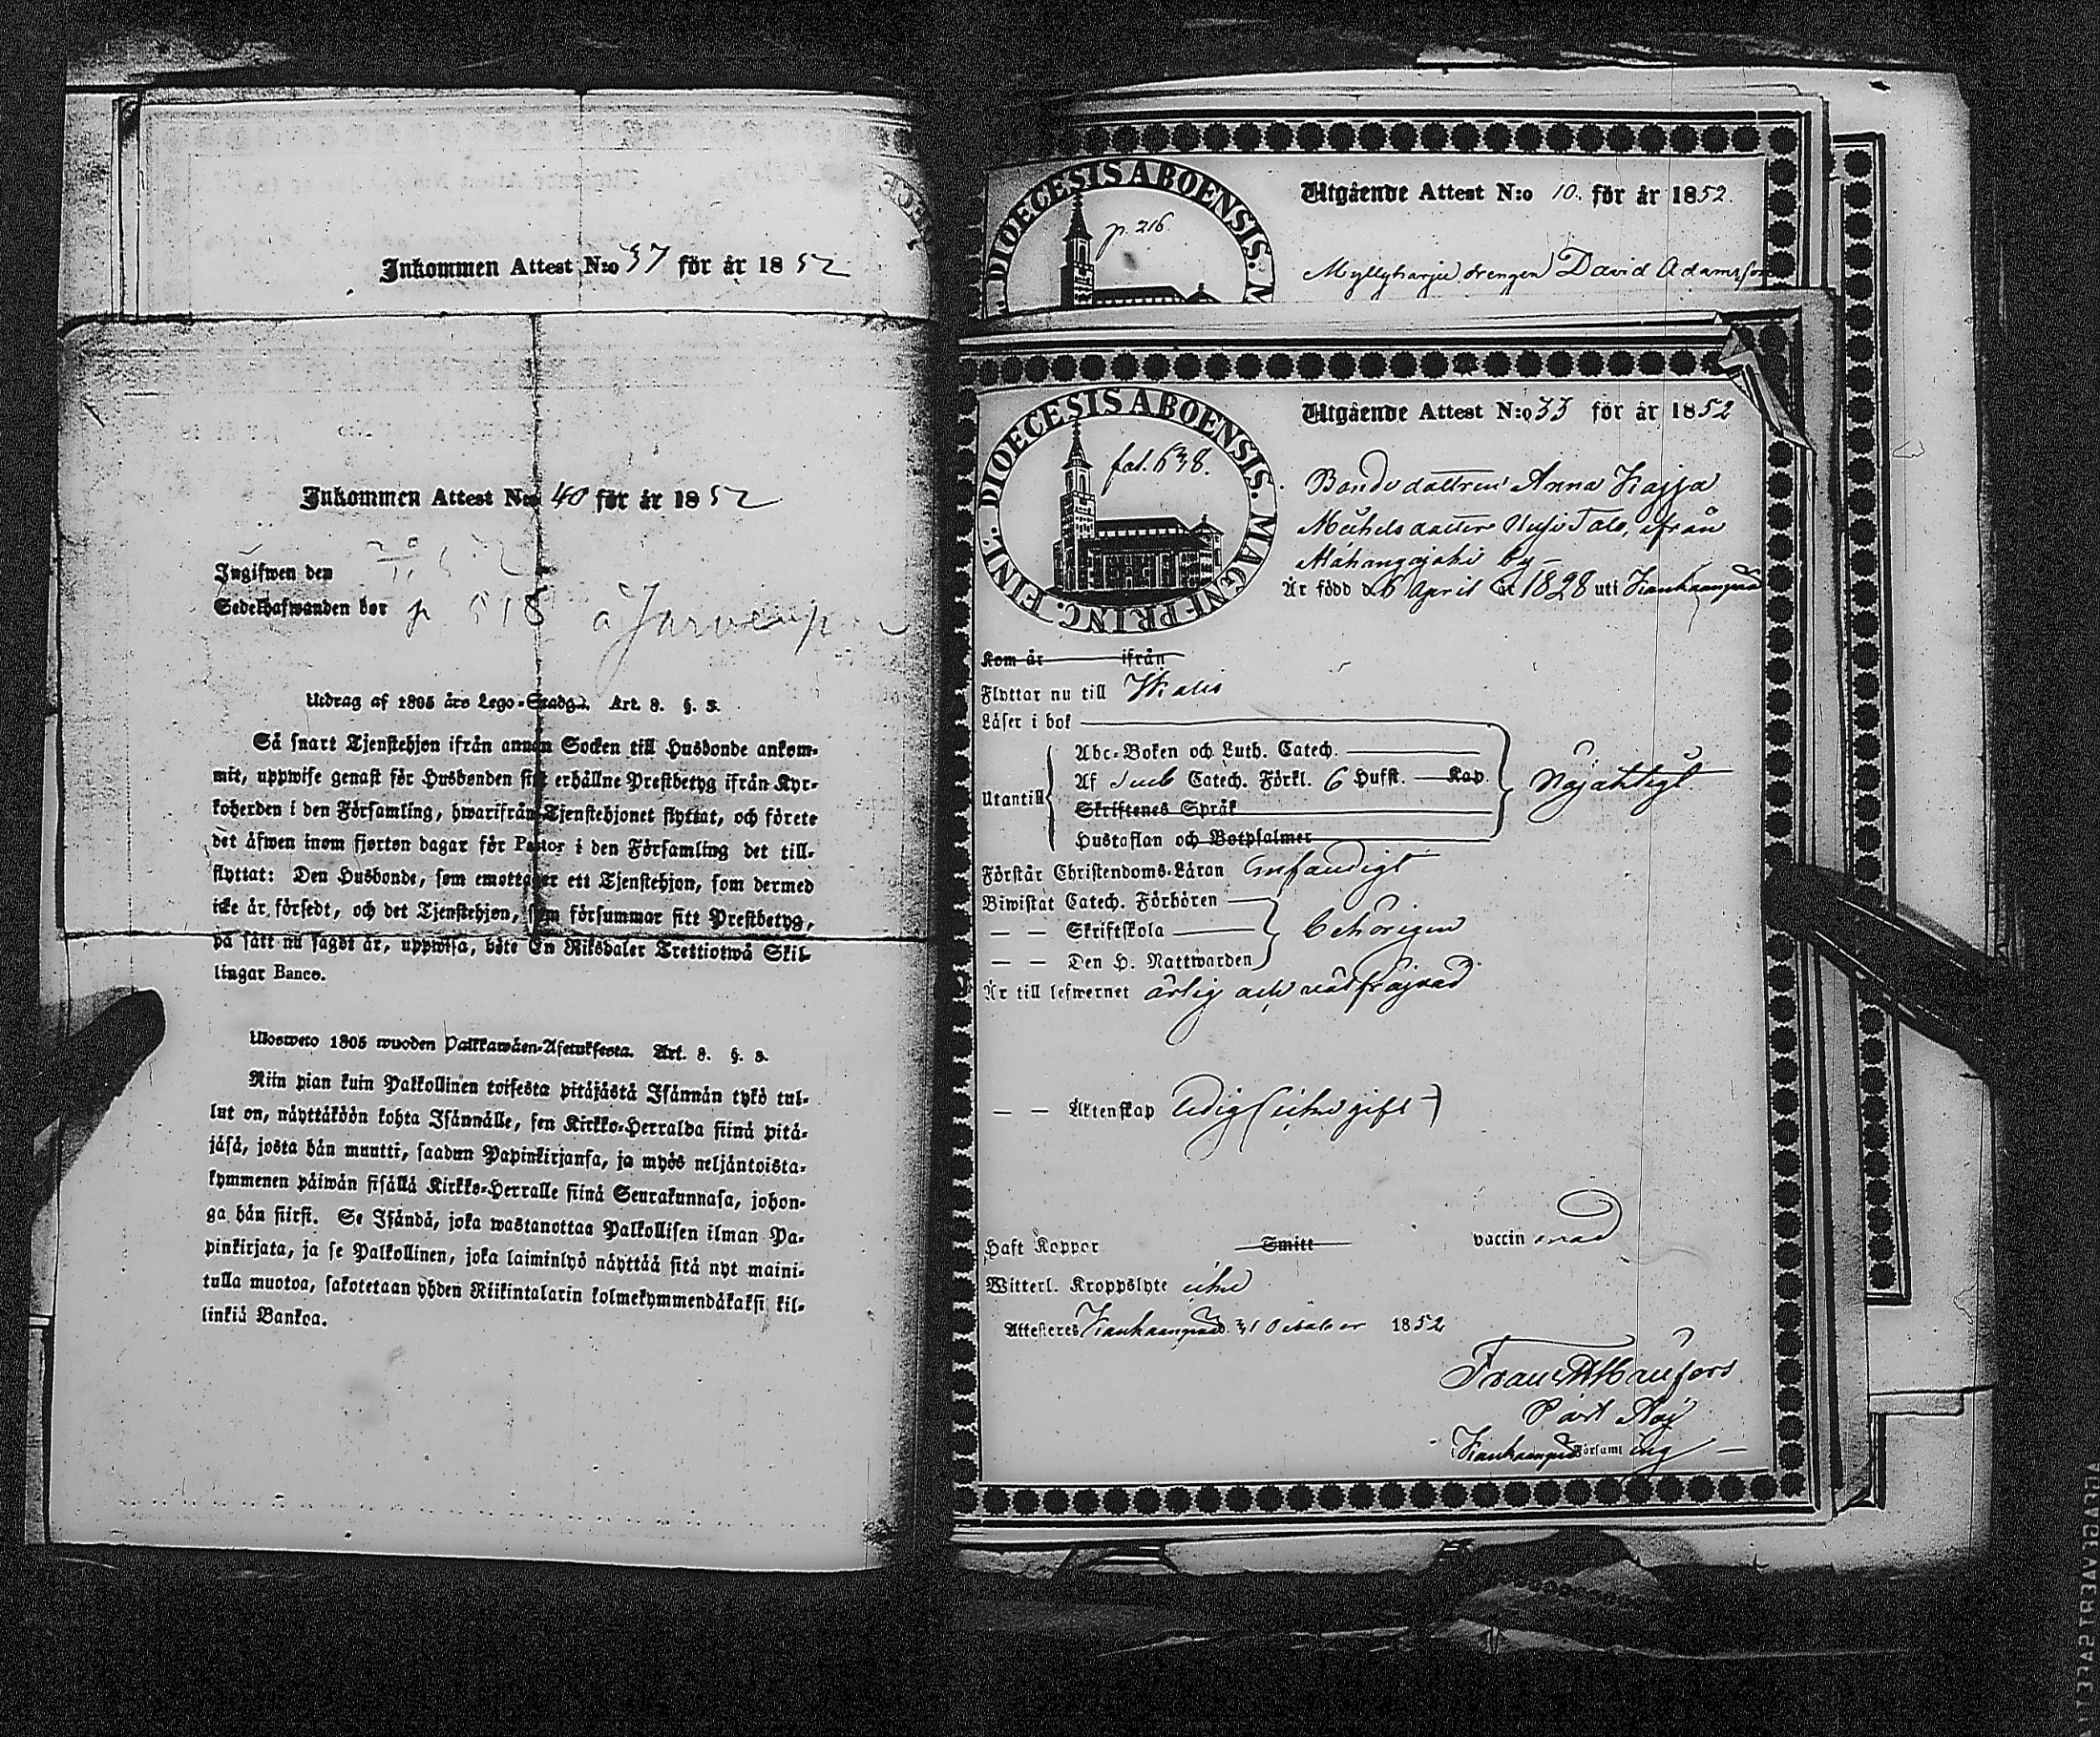 Inkommen Attest N:o 37 för år 1852
Inkommen Attest N:o 40 för år 1852
Ingifwen den
Sedelhafwanden bor p. 518 å Jarvenpä
Utdrag af 1805 års Lego-Stadga. Art. 8. §. 3.
Så snart Tjenstehjon ifrån annan Socken till Husbonde ankom-
mit, uppwise genast för Husbonden sitt erhållne Prestbetyg ifrån Kyr-
koherden i den Församling, hwarifrån Tjenstehjonet flyttat, och förete
det äfwen inom fjorton dagar för Pastor i den Församling det till-
flyttat: Den Husbonde, som emottager ett Tjenstehjon, som dermed
icke är försedt, och det Tjenstehjon, som försummar sitt Prestbetyg,
på sätt nu sagdt är, uppwisa, böte En Riksdaler Trettiotwå Skil-
lingar Banco.
Ulosweto 1805 wuoden Palkkawäen-Asetuksesta. Art. 8. §. 3.
Niin pian kuin Palkollinen toisesta pitäjästä Isännän tykö tul-
lut on, näyttäköön kohta Isännälle, sen Kirkko-Herralda siinä pitä-
jäsä, josta hän muutti, saadun Papinkirjansa, ja myös neljäntoista-
kymmenen päiwän sisällä Kirkko-Herralle siinä Seurakunnasa, johon-
ga hän siirsi. Se Isändä, joka wastanottaa Palkollisen ilman Pa-
pinkirjata, ja se Palkollinen, joka laiminlyö näyttää sitä nyt maini-
tulla muotoa, sakotetaan yhden Riikintalarin kolmekymmendäkaksi kil-
linkiä Bankoa.
DIOECESIS ABOENSIS. M
p. 216
Utgående Attest N:o 10. för år 1852.
Myllyharju drengen David Adamsson
DIOECESIS ABOENSIS. MAGNI PRINC. FINL.
fol. 638.
Utgående Attest N:o 33 för år 1852
Bondedottren Anna Kajsa
Michelsdotter Uusi Talo, ifrån
by
Är född d. 6 April år 1828 uti Kankaanpää
Kom år ifrån
Flyttar nu till Ikalis
Läser i bok
Abc-Boken och Luth. Catech.
Utantill Af Sveb Catech. Förkl. 6 Hufst. Kap. Nöjaktigt
Skriftenes Språk
Hustaflan och Botpsalmer
Förstår Christendoms-Läran Enfaldigt
Biwistat Catech. Förhören
— — Skriftskola behörigen
— — Den H. Nattwarden
Är till lefwernet ärlig och välfräjdad
— — Äktenskap ledig (icke gift)
Haft Koppor Smitt vaccinerad
Witterl. Kroppslyte icke
Attesteres Kankaanpää 31 October 1852
Frans
Past Adj
Kankaanpää Församling